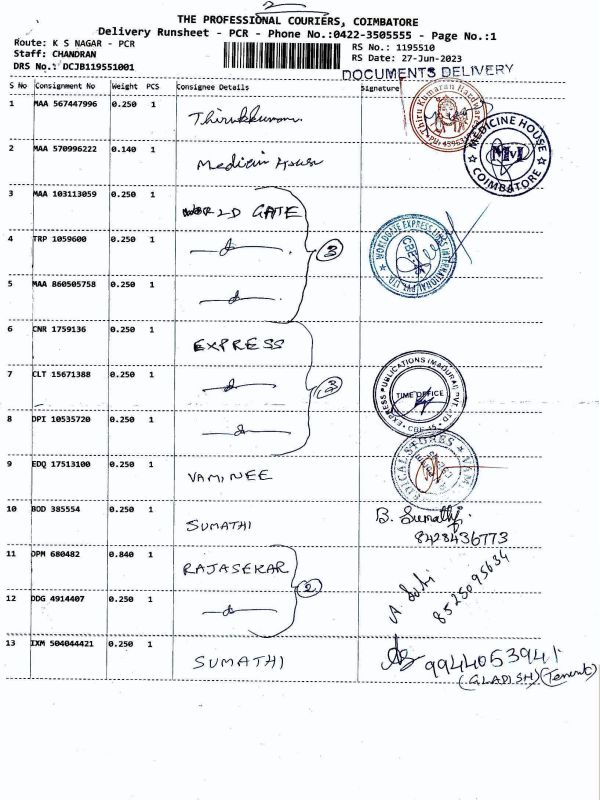 2
THE PROFESSIONAL COURIERS, COIMBATORE
Delivery Runsheet - PCR - Phone No.:0422-3505555 - Page No.:1
Route: K S NAGAR - PCR
RS No.: 1195510
Staff: CHANDRAN
RS Date: 27-Jun-2023
DRS No.: DCJB119551001
DOCUMENTS DELIVERY
S No Consignment No Weight PCS Consignee Details Signature
1 MAA 567447996 0.250 1
Thiru Kumaran
2 MAA 570996222 0.140 1 Medicin House
MEDICINE HOUSE
MM
COIMBATORE
3 MAA 103113059 0.250 1 WORLD GATE
4 TRP 1059600 0.250 1
3
WORLDGATE EXPRESS LINES INTERNATIONAL PVT. LTD.
CBE
5 MAA 860505758 0.250 1
6 CNR 1759136 0.250 1 EXPRESS
7 CLT 15671388 0.250 1
EXPRESS PUBLICATIONS (MADURAI) PVT. LTD
TIME OFFICE
CBE-45
8 DPI 10535720 0.250 1
9 EDQ 17513100 0.250 1 VAMINEE
10 BOD 385554 0.250 1 SUMATHI B. Sumathi
8428436773
11 DPM 680482 0.840 1 RAJASEKAR
2
8525095634
12 DDG 4914407 0.250 1
13 IXM 504044421 0.250 1 SUMATHI 9944053941
(GLADISH) (Tenent)